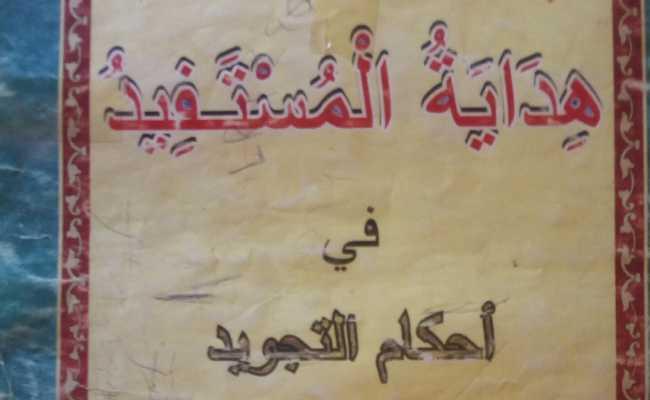 هِدَايَةُ الْمُسْتَفِيدُ
في
أحكام التجويد